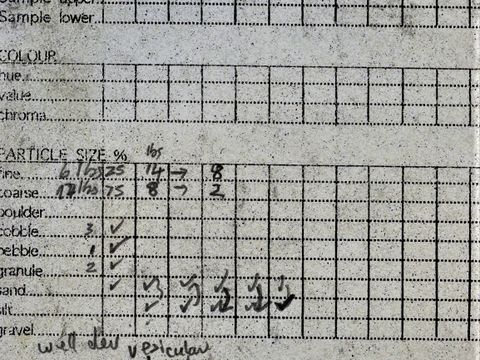 Sample upper
Sample lower
COLOUR
hue
value
chroma
lbs
PARTICLE SIZE %
fine 25 14 → 8
coarse 75 8 → 2
boulder
cobble 3 ✓
pebble 1 ✓
granule 2 ✓
sand ✓ ✓ ✓ ✓ ✓ ✓
silt ✓ ✓ ✓ ✓ ✓
gravel
well dev vesicular